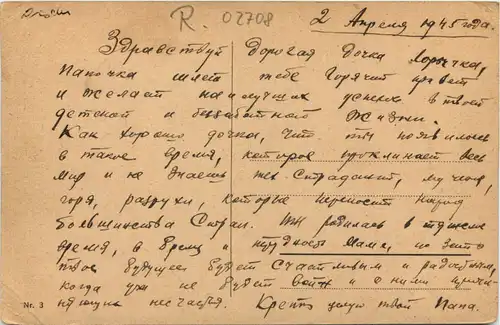 R. 02708
2 Апреля 1945 года.
Здравствуй Дорогая Дочка Лорочка,
Папочка шлет тебе Горячий привет
и желает наилучших успехов в твоей
детской и беззаботной Жизни.
Как хорошо дочка, что ты появилась
в такое время, которое проклинает весь
мир и не знаешь тех страданий, мучений,
горя, разрухи, которые переносит народ
большинства Стран. Ты родилась в тяжелое
время, в Грец и трудность Маме, но зато
твое будущее будет счастливым и радостным,
когда уж не будет войн и с ними причи-
няющих несчастья. Крепко целую твой Папа.
Nr. 3